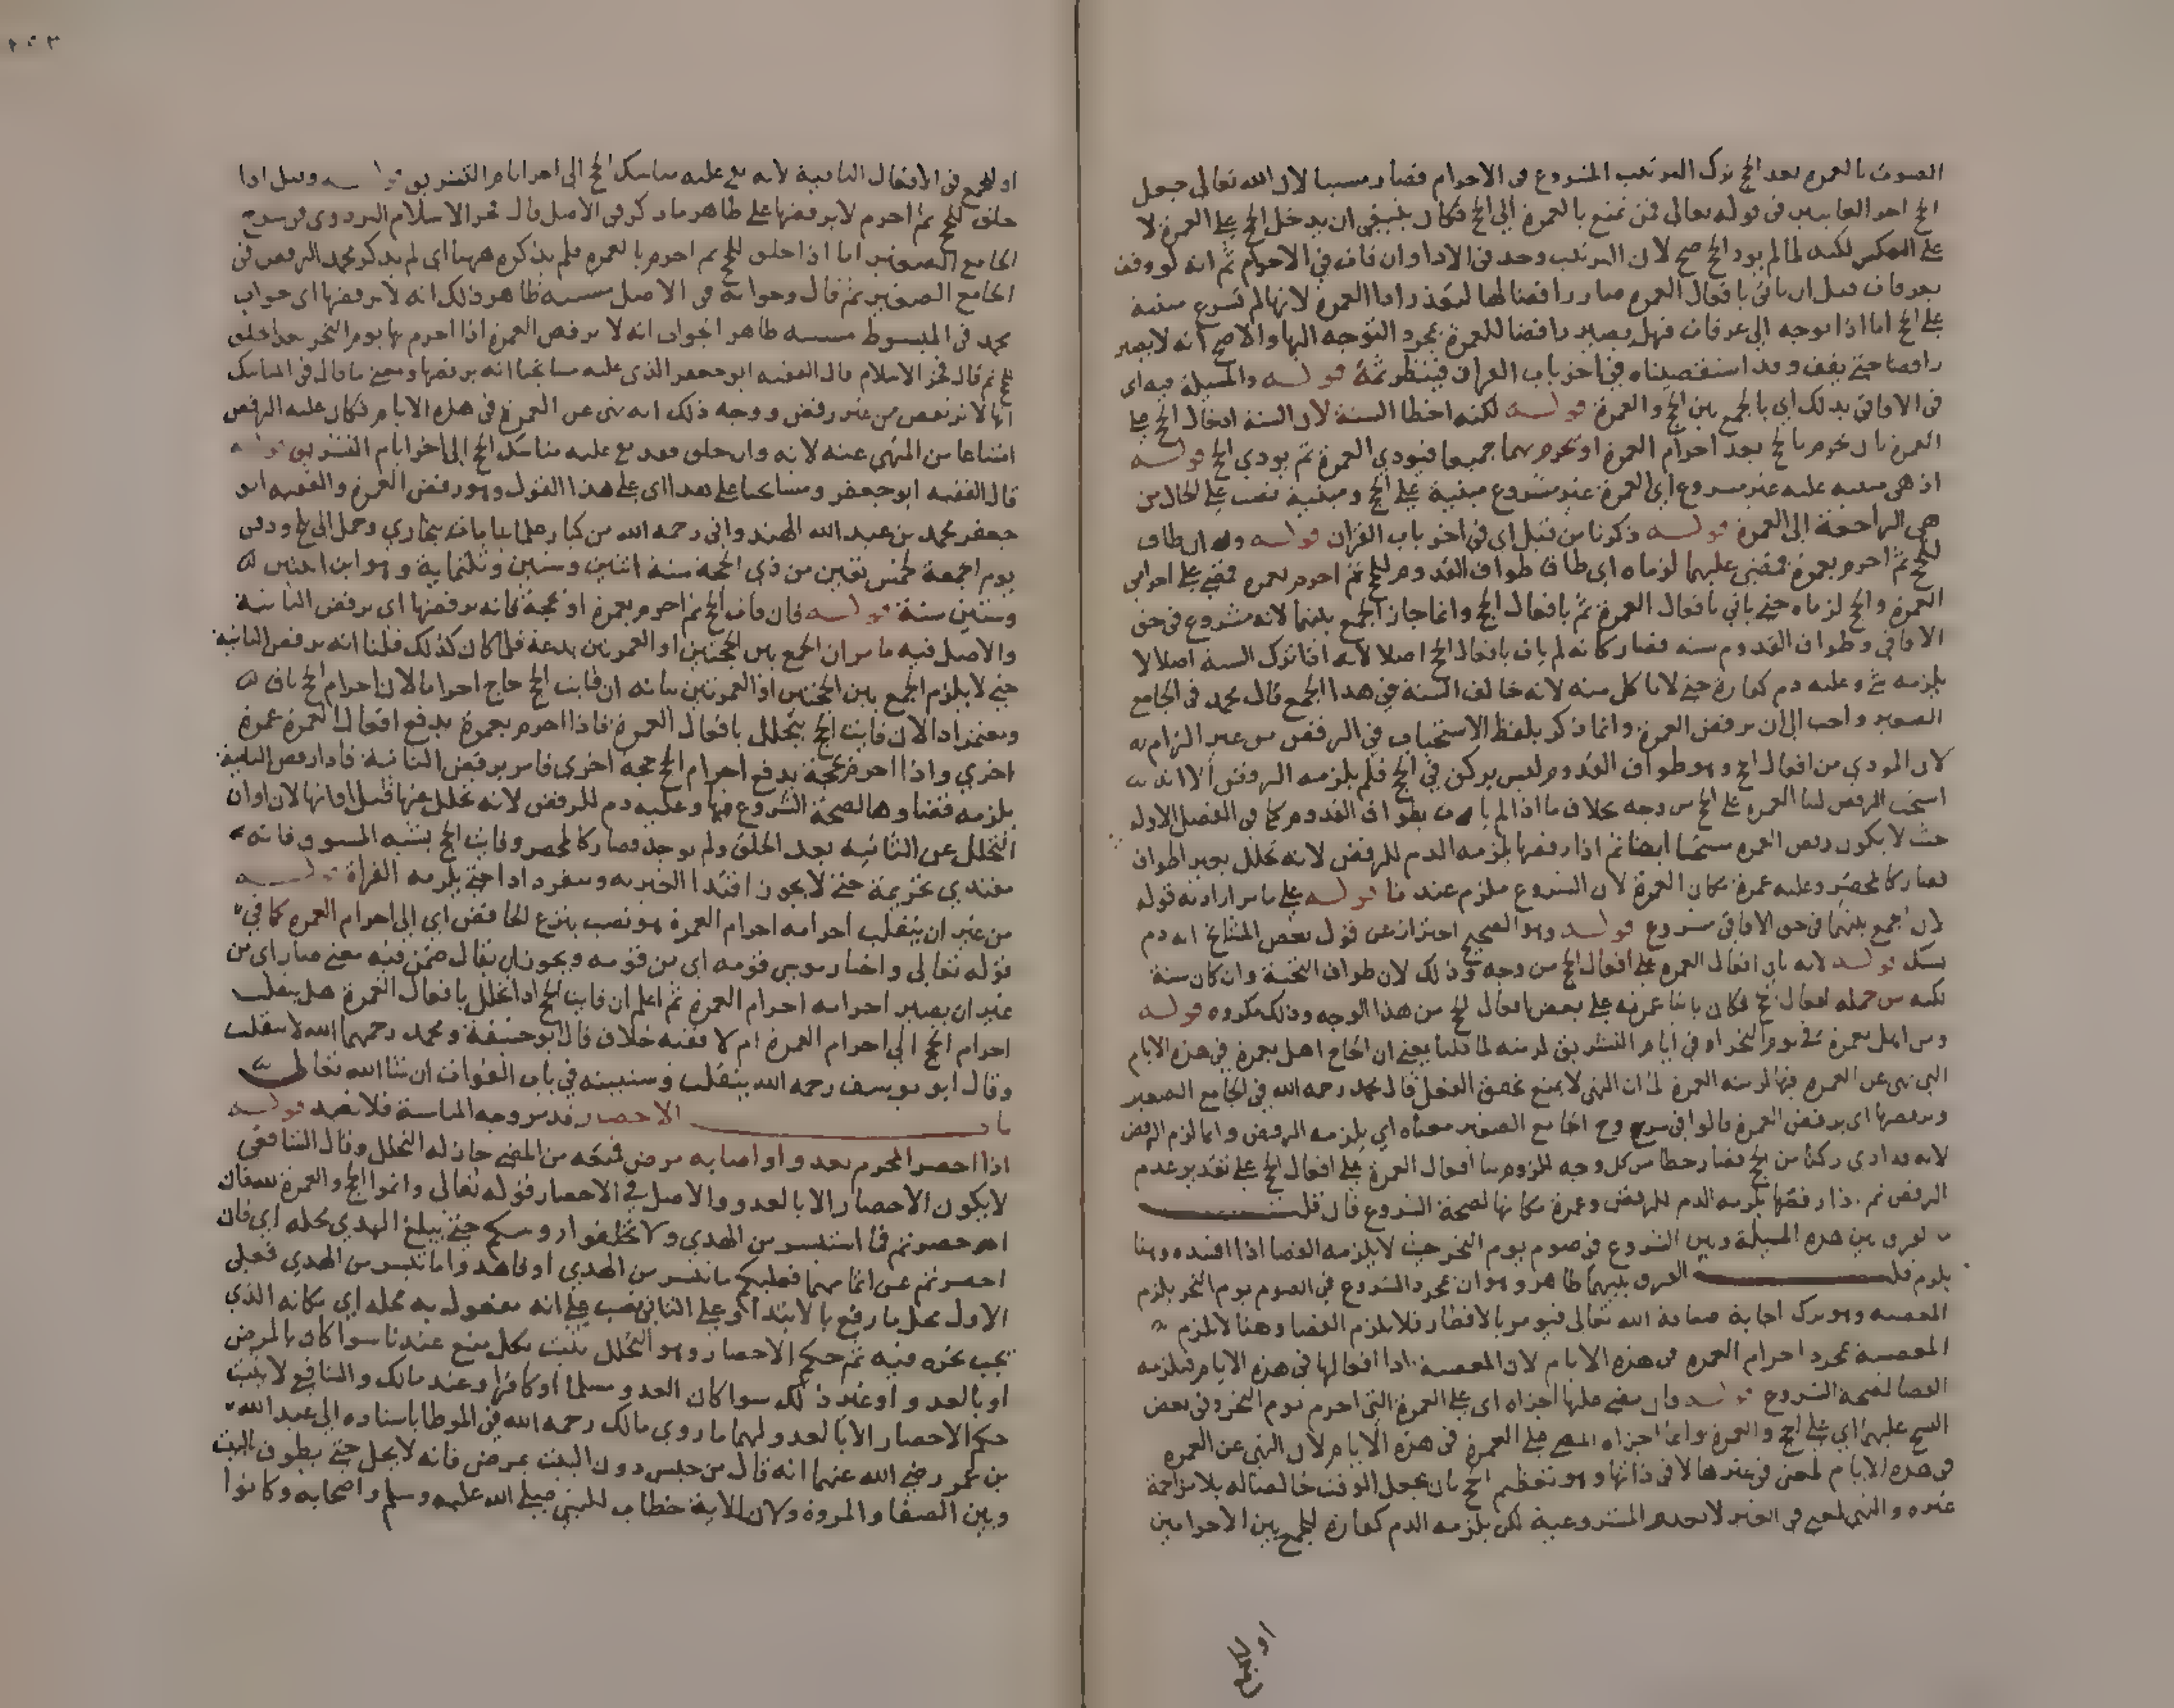 الحج احد الغايتين في قوله تعالى فمن تمتع بالعمرة الى الحج فكان ينبغي ان يدخل الحج على العمرة لا
على العكس لكنه لما لم يود الحج صح لان الترتيب وجد في الادا وان فات في الاحرام ثم انه لو وقف
بعرفات قبل ان ياتي بافعال العمرة صار رافضا لها لتعذر ادا العمرة لانها لم تشرع مبنية
على الحج اما اذا توجه الى عرفات فهل يصير رافضا للعمرة بمجرد التوجه اليها والاصح انه لا يصير
رافضا حتى يقف وقد استقصيناه في اخر باب القران فينظر ثمة قوله والمسيلة فيه اي
في الافاقي بدلك اي بالجمع بين الحج والعمرة قوله لكنه اخطا السنة لان السنة ادخال الحج على
العمرة بان يحرم بالحج بعد احرام العمرة او يحرم بهما جميعا فيودي العمرة ثم يودي الحج قوله
اذ هي مبنية عليه غير مشروع اي العمرة غير مشروع مبنية على الحج ومبنية نصب على الحال من
هي الراجعة الى العمرة قوله ذكرنا من قبل اي في اخر باب القران قوله وان طاف
للحج ثم احرم بعمرة فمضى عليهما لزماه اي طاف طواف القدوم للحج ثم احرم بعمرة فمضى على احرامي
العمرة والحج لزماه حتى ياتي بافعال العمرة ثم بافعال الحج وانما جاز الجمع بينهما لانه مشروع في حق
الافاقي وطواف القدوم سنة فصار كانه لم يات بافعال الحج اصلا لانه اذا ترك السنة اصلا لا
يلزمه شي وعليه دم كفارة حتى لا ياكل منه لانه خالف السنة في هدا الجمع قال محمد في الجامع
الصغير واحب الي ان يرفض العمرة وانما ذكر بلفظ الاستحباب في الرفض من غير الزام به
لان المودي من افعال الحج وهو طواف القدوم ليس بركن في الحج فلم يلزمه الرفض الا انه
استحب الرفض لبنا العمرة على الحج من وجه بخلاف ما اذا لم يات بطواف القدوم كما في الفصل الاول
حيث لا يكون رفض العمرة مستحبا ايضا ثم اذا رفضها يلزمه الدم للرفض لانه تحلل بغير اطواف
فصار كالمحصر وعليه عمرة مكان العمرة لان الشروع ملزم عندنا قوله على ما مر اراد به قوله
لان الجمع بينهما في حق الافاقي مشروع قوله وهو الصحيح احتراز عن قول بعض المشايخ انه دم
نسك قوله لانه بان افعال العمرة على افعال الحج من وجه وذلك لان طواف التحية وان كان سنة
لكنه من جملة افعال الحج فكان بانيا عمرته على بعض افعال الحج من هذا الوجه وذلك مكروه قوله
ومن اهل بعمرة في يوم النحر او في ايام التشريق لزمته لما قلنا يعني ان الحاج اهل بعمرة في هذه الايام
التي نهي عن العمرة فيها لزمته العمرة لما ان النهي لا يمنع تحقق الفعل قال محمد رحمه الله في الجامع الصغير
ويرفضها اي يرفض العمرة قالوا في شروح الجامع الصغير معناه اي يلزمه الرفض وانما لزم الرفض
لانه قد ادى ركنا من الحج فصار خطا من كل وجه للزوم بنا افعال العمرة على افعال الحج على تقدير عدم
الرفض ثم اذا رفضها يلزمه الدم للرفض وعمرة مكانها لصحة الشروع فان قلت
ما الفرق بين هذه المسيلة وبين الشروع في صوم يوم النحر حيث لا يلزمه القضا اذا افسده وهنا
يلزم قلت الفرق بينهما ظاهر وهو ان بمجرد الشروع في الصوم يوم النحر يلزم
المعصية وهو ترك اجابة ضيافة الله تعالى فيومر بالافطار فلا يلزم القضا وهنا لا يلزم
المعصية بمجرد احرام العمرة في هذه الايام لان المعصية ادا افعالها في هذه الايام فيلزمه
القضا لصحة الشروع قوله فان مضى عليها اجزاه اي على العمرة التي احرم يوم النحر وفي بعض
النسخ عليهما اي على الحج والعمرة وانما اجزاه المضي على العمرة في هذه الايام لان النهي عن العمرة
في هذه الايام لمعنى في غيرها لا في ذاتها وهو تعظيم الحج بان يجعل الوقت خالصا له بلا مزاحمة
غيره والنهي لمعنى في الغير لا يعدم المشروعية لكن يلزمه الدم كفارة للجمع بين الاحرامين
او للجمع
او للجمع في الافعال الباقية لانه بقي عليه مناسك الحج الى اخر ايام التشريق قوله وقيل اذا
حلق للحج ثم احرم لا يرفضها على ظاهر ما ذكر في الاصل قال فخر الاسلام البزدوي في شرح
الجامع الصغير اما اذا حلق للحج ثم احرم بالعمرة فلم يذكره ههنا اي لم يذكر محمد الرفض في
الجامع الصغير ثم قال وجوابه في الاصل مشتبه ظاهر ذلك انه لا يرفضها اي جواب
محمد في المبسوط مشتبه ظاهر الجواب انه لا يرفض العمرة اذا احرم بها يوم النحر بعد الحلق
للحج ثم قال فخر الاسلام قال الفقيه ابو جعفر الذي عليه مشايخنا انه يرفضها ومعنى ما قال في المناسك
انها لا ترتفض من غير رفض ووجه ذلك انه نهى عن العمرة في هذه الايام فكان عليه الرفض
امتناعا من المنهي عنه لانه وان حلق فقد بقي عليه مناسك الحج الى اخر ايام التشريق قوله
قال الفقيه ابو جعفر ومشايخنا على هدا اي على هذا القول وهو رفض العمرة والفقيه ابو
جعفر محمد بن عبد الله الهندواني رحمه الله من كبار علماينا مات ببخاري وحمل الى بلخ ودفن
يوم الجمعة لخمس بقين من ذي الحجة سنة اثنتين وستين وثلثماية وهو ابن اثنتين
وستين سنة قوله فان فات الحج ثم احرم بعمرة او بحجة فانه يرفضها اي يرفض الثانية
والاصل فيه ما مر ان الجمع بين الحجتين او العمرتين بدعة فلما كان كذلك قلنا انه يرفض الثانية
حتى لا يلزم الجمع بين الحجتين او العمرتين بيانه ان فايت الحج حاج احراما لان احرام الحج باق
ومعتمر ادا لان فايت الحج يتحلل بافعال العمرة فاذا احرم بعمرة يدفع افعال العمرة عمرة
اخري واذا احرم بحجة يدفع احرام الحج حجة اخري فامر برفض الثانية فاذا رفض الثانية
يلزمه قضاوها لصحة الشروع فيها وعليه دم للرفض لانه تحلل عنها قبل اوانها لان اوان
التحلل عن الثانية بعد الحلق ولم يوجد فصار كالمحصر وفايت الحج يشبه المسبوق فانه
مقتدي تحريمة حتى لا يجوز اقتدا الغير به ومنفرد ادا حتى يلزمه القراة قوله
من غير ان ينقلب احرامه احرام العمرة هو نصب بنزع الخافض اي الى احرام العمرة كما في
قوله تعالى واختار موسى قومه اي من قومه ويجوز ان يقال ضمن فيه معنى صار اي من
غير ان يصير احرامه احرام العمرة ثم اعلم ان فايت الحج اذا تحلل بافعال العمرة هل ينقلب
احرام الحج الى احرام العمرة ام لا ففيه خلاف قال ابو حنيفة ومحمد رحمهما الله لا ينقلب
وقال ابو يوسف رحمه الله ينقلب وسنبينه في باب الفوات ان شا الله تعالى
باب الاحصار قد مر وجه المناسبة فلا نعيد قوله
اذا احصر المحرم بعدو او اصابه مرض فمنعه من المضي جاز له التحلل وقال الشافعي
لا يكون الاحصار الا بالعدو والاصل في الاحصار قوله تعالى واتموا الحج والعمرة لله فان
احصرتم فما استيسر من الهدي ولا تحلقوا روسكم حتى يبلغ الهدي محله اي فان
احصرتم عن اتمامهما فعليكم ما تيسر من الهدي او فاهدوا ما تيسر من الهدي فعلى
الاول محل ما رفع بالابتدا وعلى الثاني نصب على انه مفعول به محله اي مكانه الذي
يجب نحره فيه ثم حكم الاحصار وهو التحلل يثبت بكل منع عندنا سوا كان بالمرض
او بالعدو او غير ذلك سوا كان العدو مسلما او كافرا وعند مالك والشافعي لا يثبت
حكم الاحصار الا بالعدو لهما ما روي مالك رحمه الله في الموطا باسناده الى عبد الله
بن عمر رضي الله عنهما انه قال من حبس دون البيت بمرض فانه لا يحل حتى يطوف بالبيت
وبين الصفا والمروة ولان الاية خطاب للنبي صلى الله عليه وسلم واصحابه وكانوا